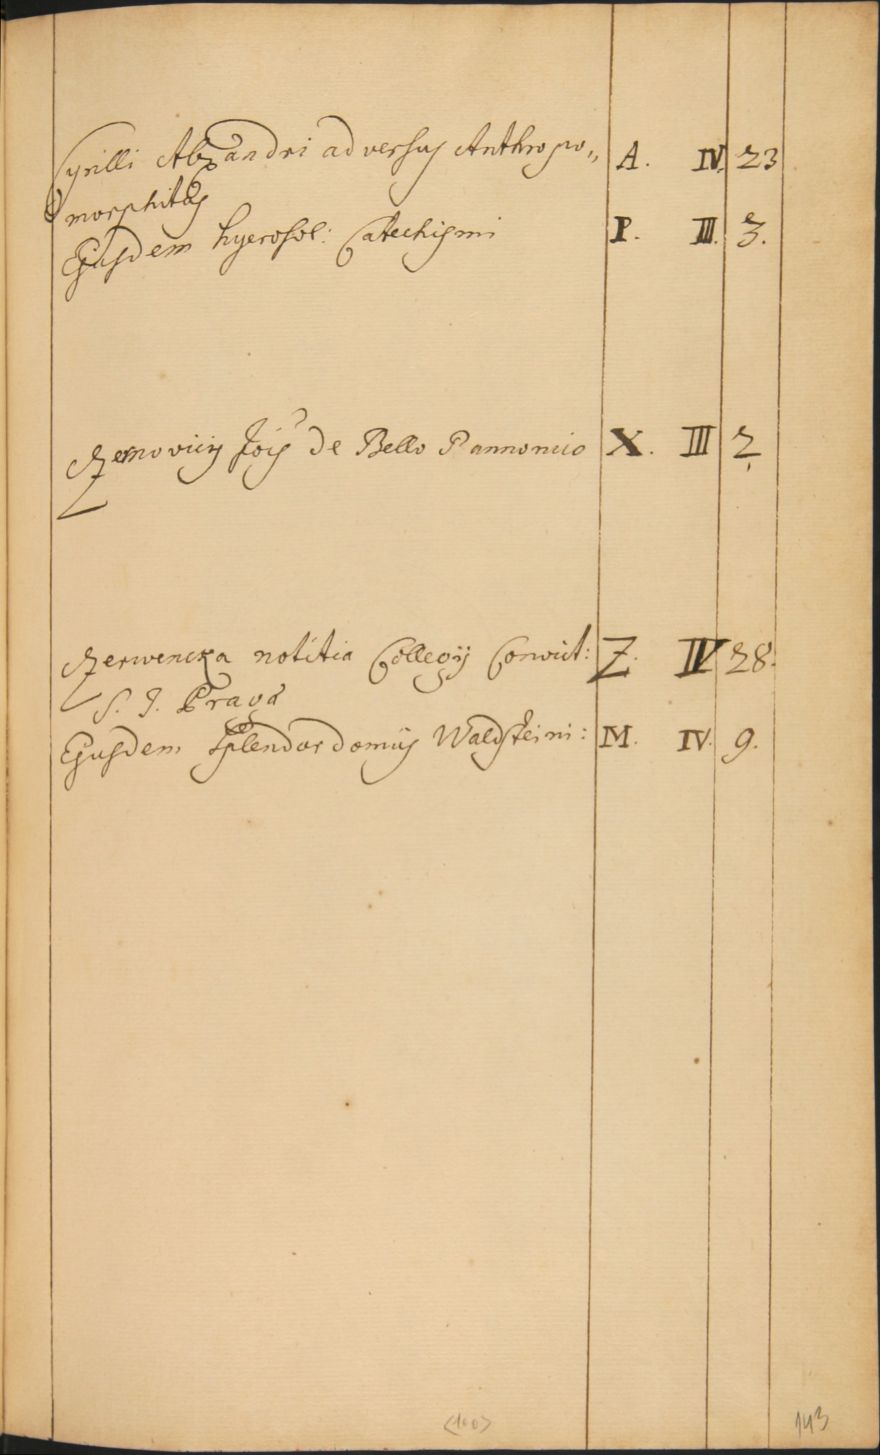 Cyrilli Alexandri adversus Anthropo„ A. IV. 23
morphitas
Ejusdem hyerosol: Catechismi P. III. 3.
Czernovicij Jois De Bello Pannonico X. III 2
Czerwencka notitia Collegij Convict: Z. IV 28.
S. J. Pragæ
Ejusdem Splendor domus Waldsteini: M. IV. 9.
<100> 143